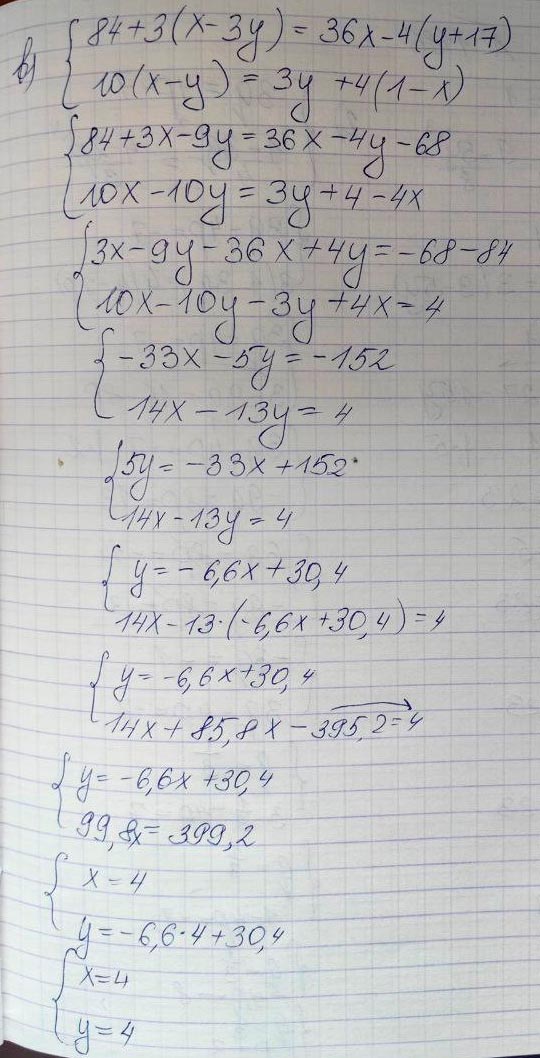 в) 84+3(x-3y) = 36x-4(y+17)
10(x-y) = 3y +4(1-x)
84+3x-9y=36x-4y-68
10x-10y=3y+4-4x
3x-9y-36x+4y=-68-84
10x-10y-3y+4x=4
-33x-5y=-152
14x-13y=4
5y=-33x+152
14x-13y=4
y=-6,6x+30,4
14x-13·(-6,6x+30,4)=4
y=-6,6x+30,4
14x+85,8x-395,2=4
y=-6,6x+30,4
99,8x=399,2
x=4
y=-6,6·4+30,4
x=4
y=4